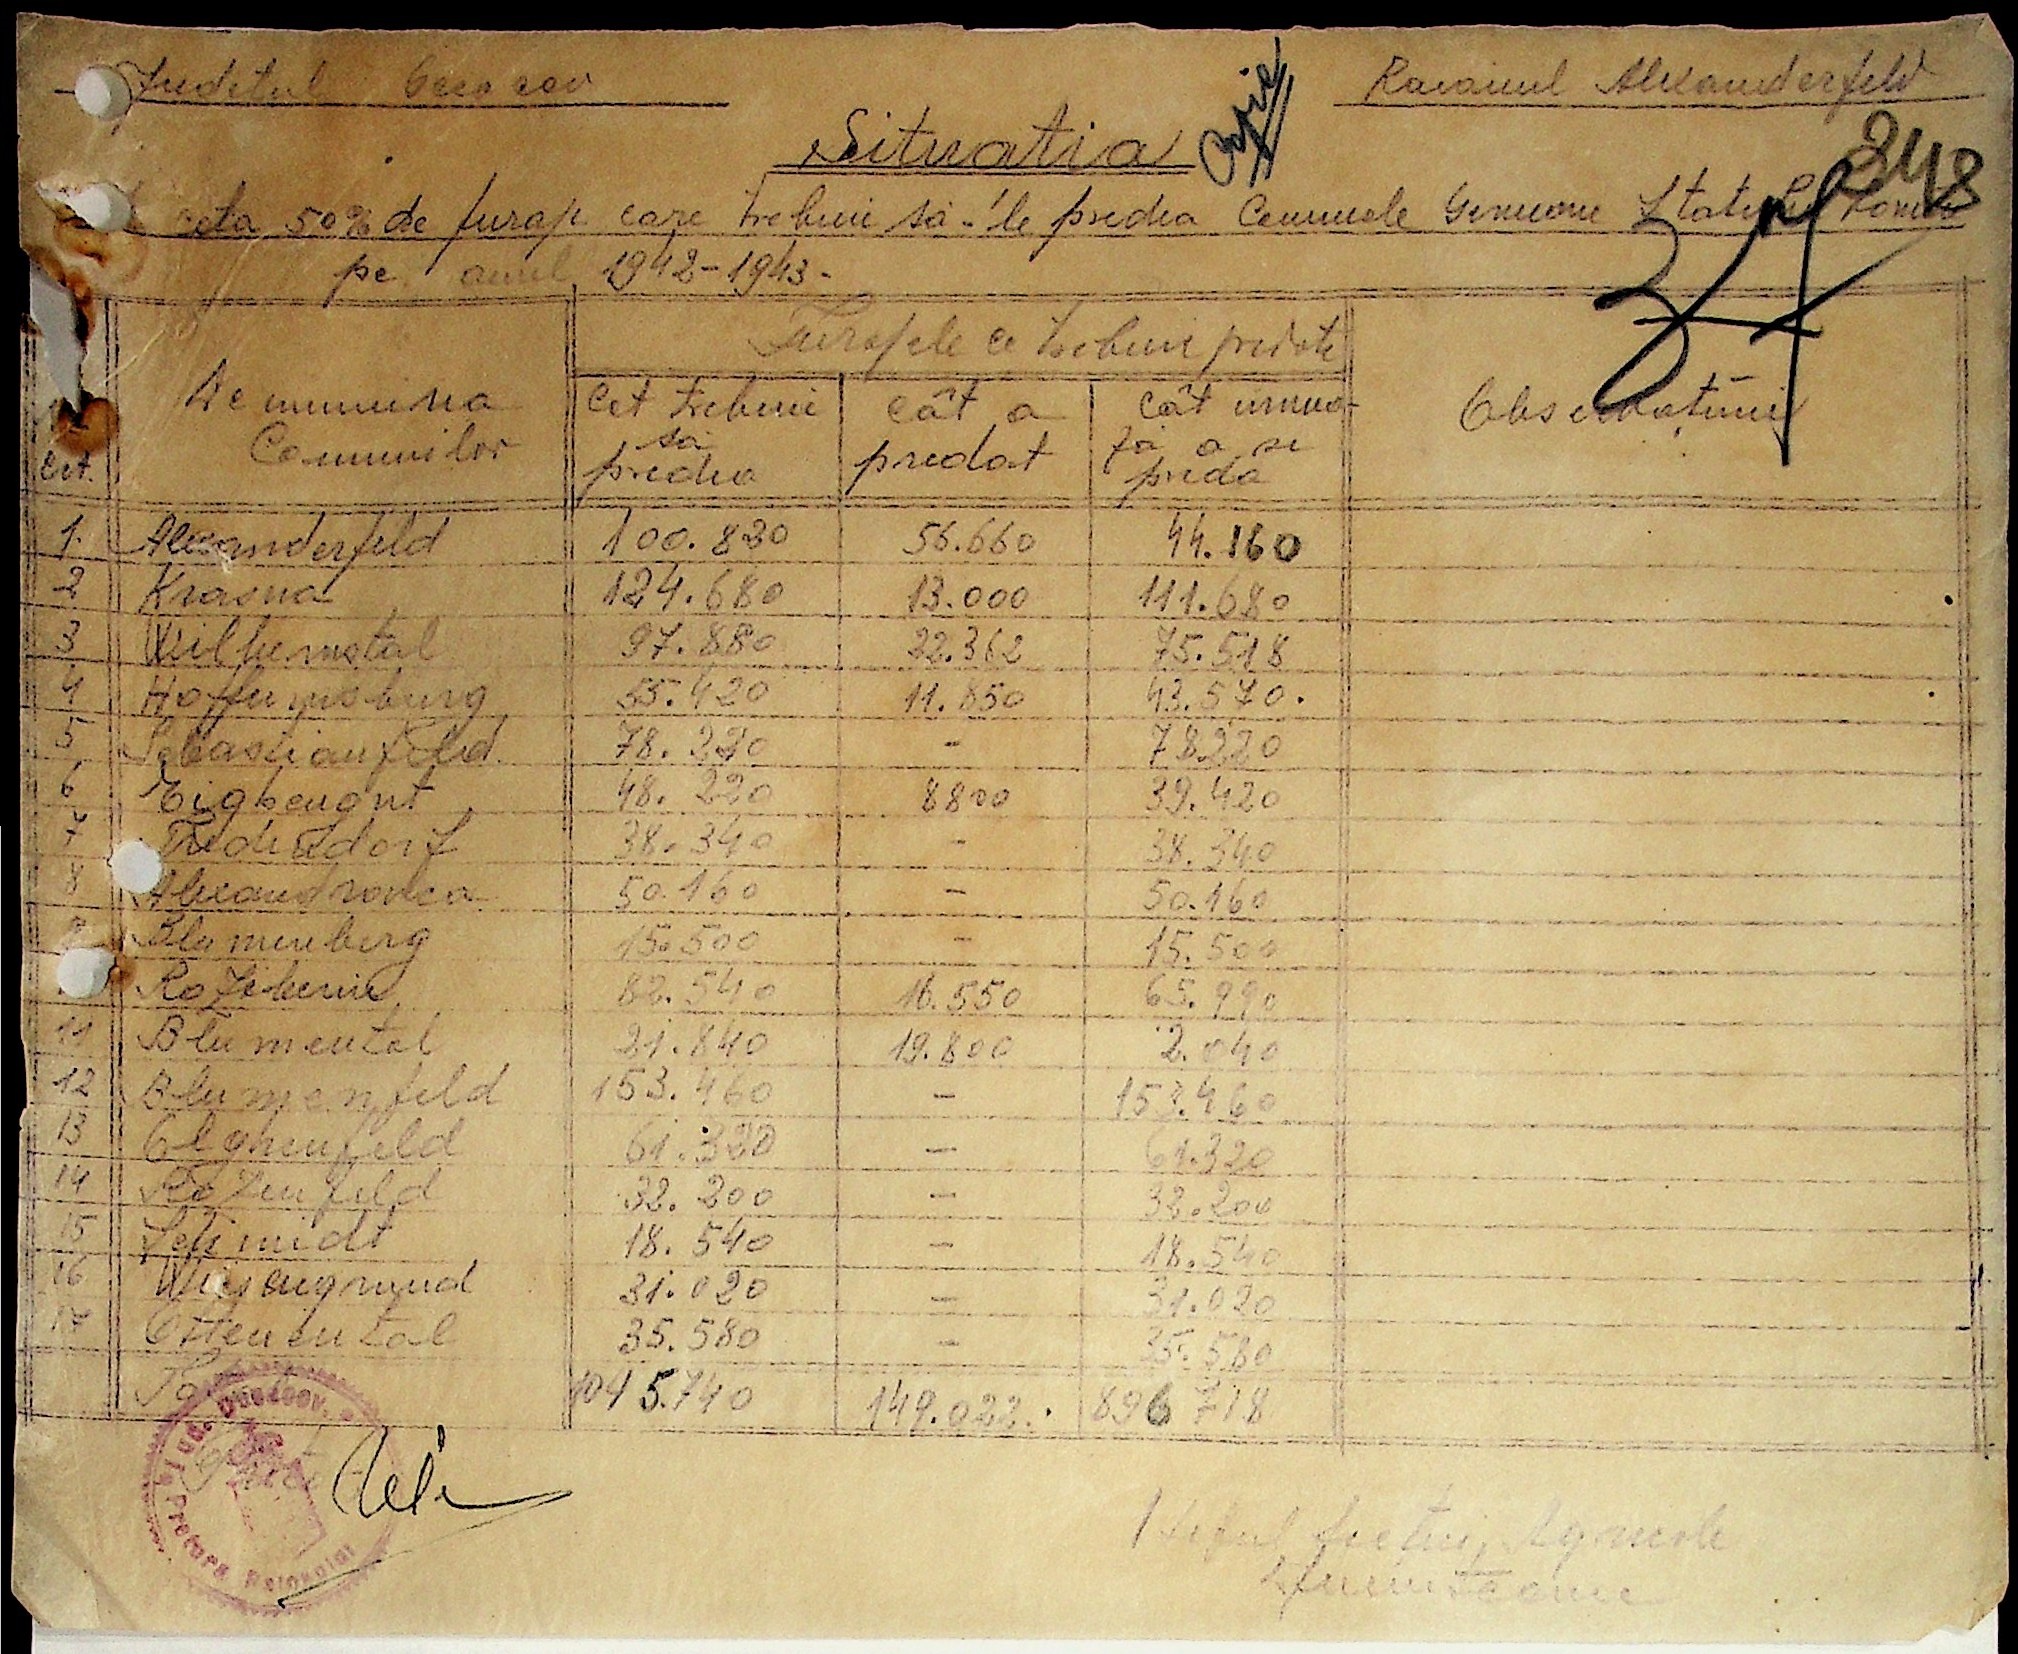 Judetul Oceacov
Raionul Alexanderfeld
Situatia
Copie
248
37
cota 50% de furaje care trebuie să-le predea Comunele Germane Statului Român
pe anul 1942-1943-
Nr. Crt.
Denumirea Comunilor
Furajele ce trebuie predate
Cet trebuie să predea
Cât a predat
Cât urmează a se preda
Observatiuni
1. Alexanderfeld 100.830 56.660 44.160
2 Krasna 124.680 13.000 111.680
3 Wilhemstal 97.880 22.362 75.518
4 Hoffnungsburg 55.420 11.850 43.570.
5 Sebastianfeld 78.220 - 78.220
6 Eighengut 48.220 8800 39.420
7 Frederesdorf 38.340 - 38.340
8 Alexandrovca 50.160 - 50.160
9 Blumenberg 15.500 - 15.500
Roziheim 82.540 16.550 65.990
11 Blumental 21.840 19.800 2.040
12 Blumenfeld 153.460 - 153.460
13 Elghenfeld 61.320 - 61.320
14 Rozenfeld 32.200 - 32.200
15 Schmidt 18.540 - 18.540
16 Wiesengrund 31.020 - 31.020
17 Ottenental 35.580 - 35.580
1045.740 149.022. 896718
Jud.
Pretura Raionului
Seful Secției Agricole